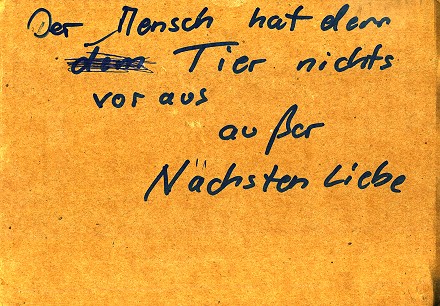 Der Mensch hat dem
Tier nichts
vor aus
außer
Nächsten Liebe